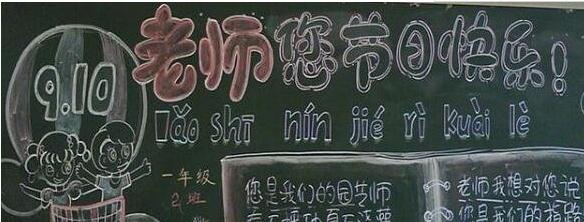 9.10
老师您节日快乐!
lǎo shī nín jié rì kuài lè
一年级
2班
您是我们的园艺师
老师我想对您说
您是我们的